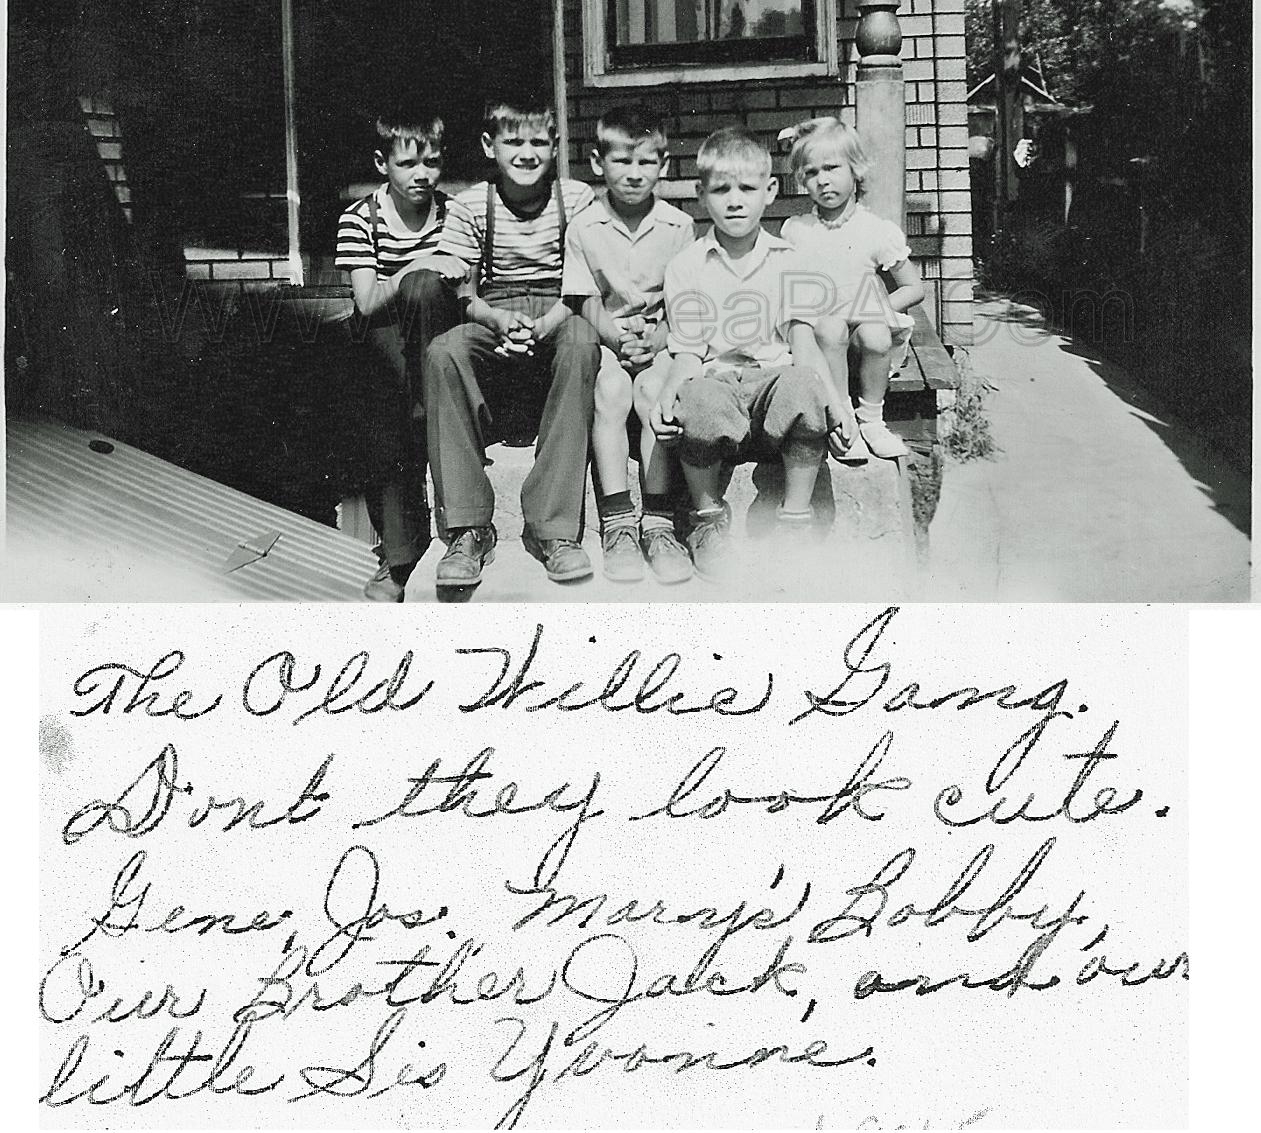 The Old Willie Gang.
Dont they look cute.
Gene, Jos. Mary's Bobby,
Our Brother Jack, and our
little Sis Yvonne.